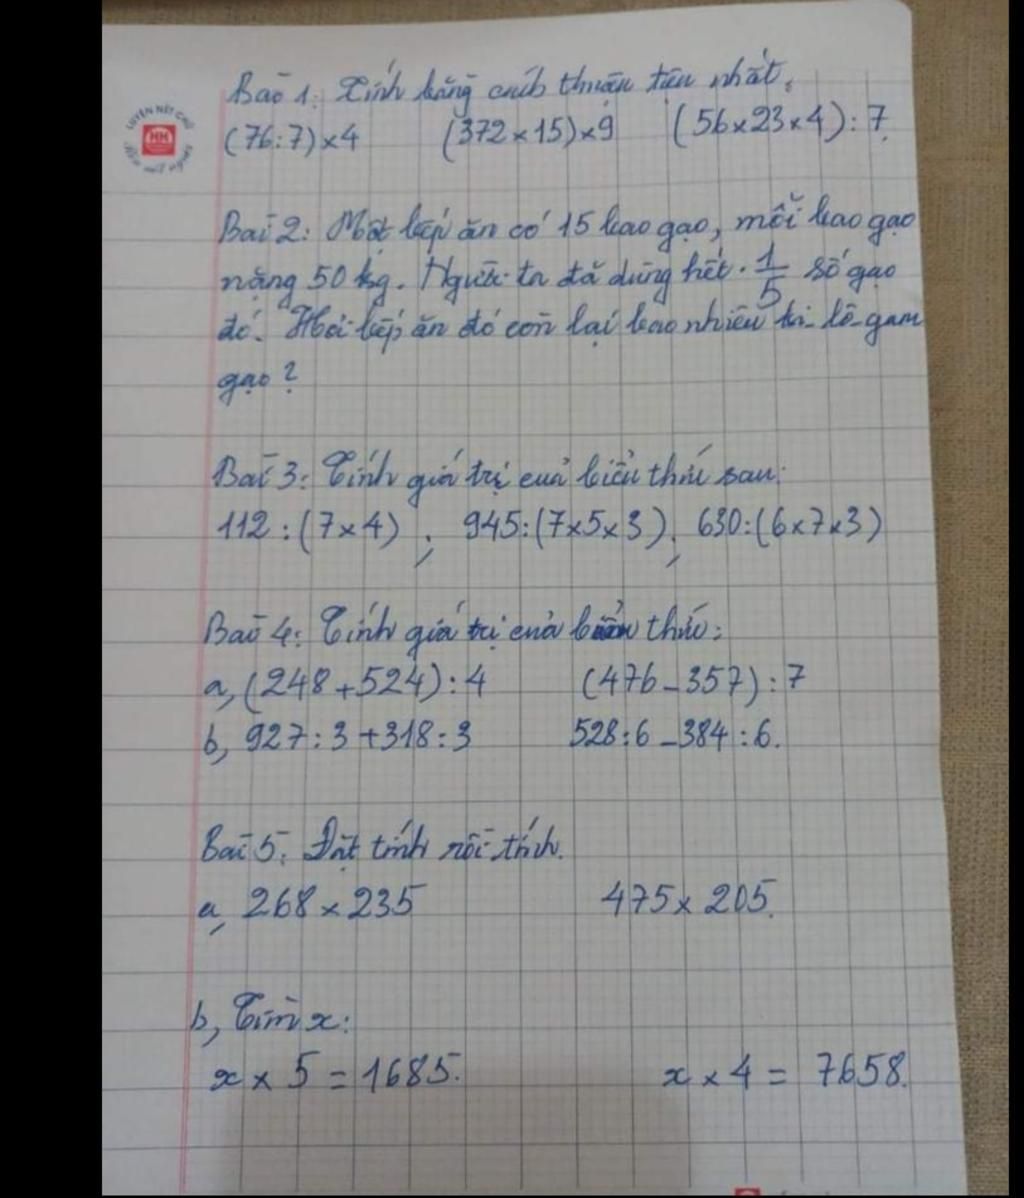 LUYỆN NÉT CHỮ
HH
Rèn nết người
Bài 1: Tính bằng cách thuận tiện nhất.
(76:7)×4 (372×15)×9 (56×23×4):7.
Bài 2: Một bếp ăn có 15 bao gạo, mỗi bao gạo
nặng 50 kg. Người ta đã dùng hết 1/5 số gạo
đó. Hỏi bếp ăn đó còn lại bao nhiêu ki-lô-gam
gạo?
Bài 3: Tính giá trị của biểu thức sau:
112:(7×4) ; 945:(7×5×3) ; 630:(6×7×3)
Bài 4: Tính giá trị của biểu thức:
a, (248+524):4 (476-357):7
b, 927:3+318:3 528:6-384:6.
Bài 5: Đặt tính rồi tính.
a, 268×235 475×205.
b, Tìm x:
x × 5 = 1685. x × 4 = 7658.